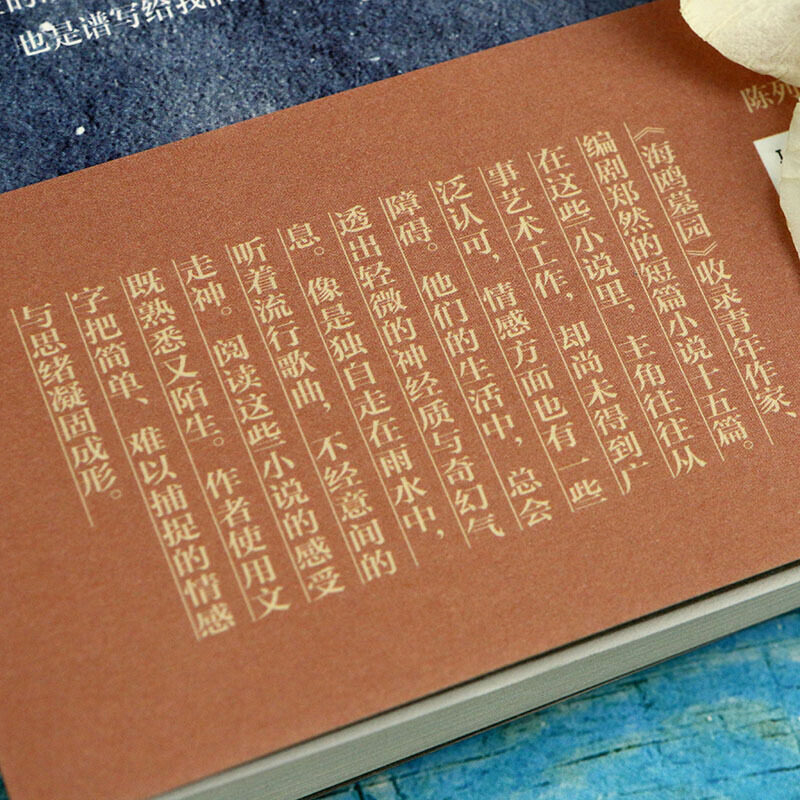 也是谱写给我们
陈列
《海鸥墓园》收录青年作家、
编剧郑然的短篇小说十五篇。
在这些小说里，主角往往从
事艺术工作，却尚未得到广
泛认可，情感方面也有一些
障碍。他们的生活中，总会
透出轻微的神经质与奇幻气
息。像是独自走在雨水中，
听着流行歌曲，不经意间的
走神。阅读这些小说的感受
既熟悉又陌生。作者使用文
字把简单、难以捕捉的情感
与思绪凝固成形。